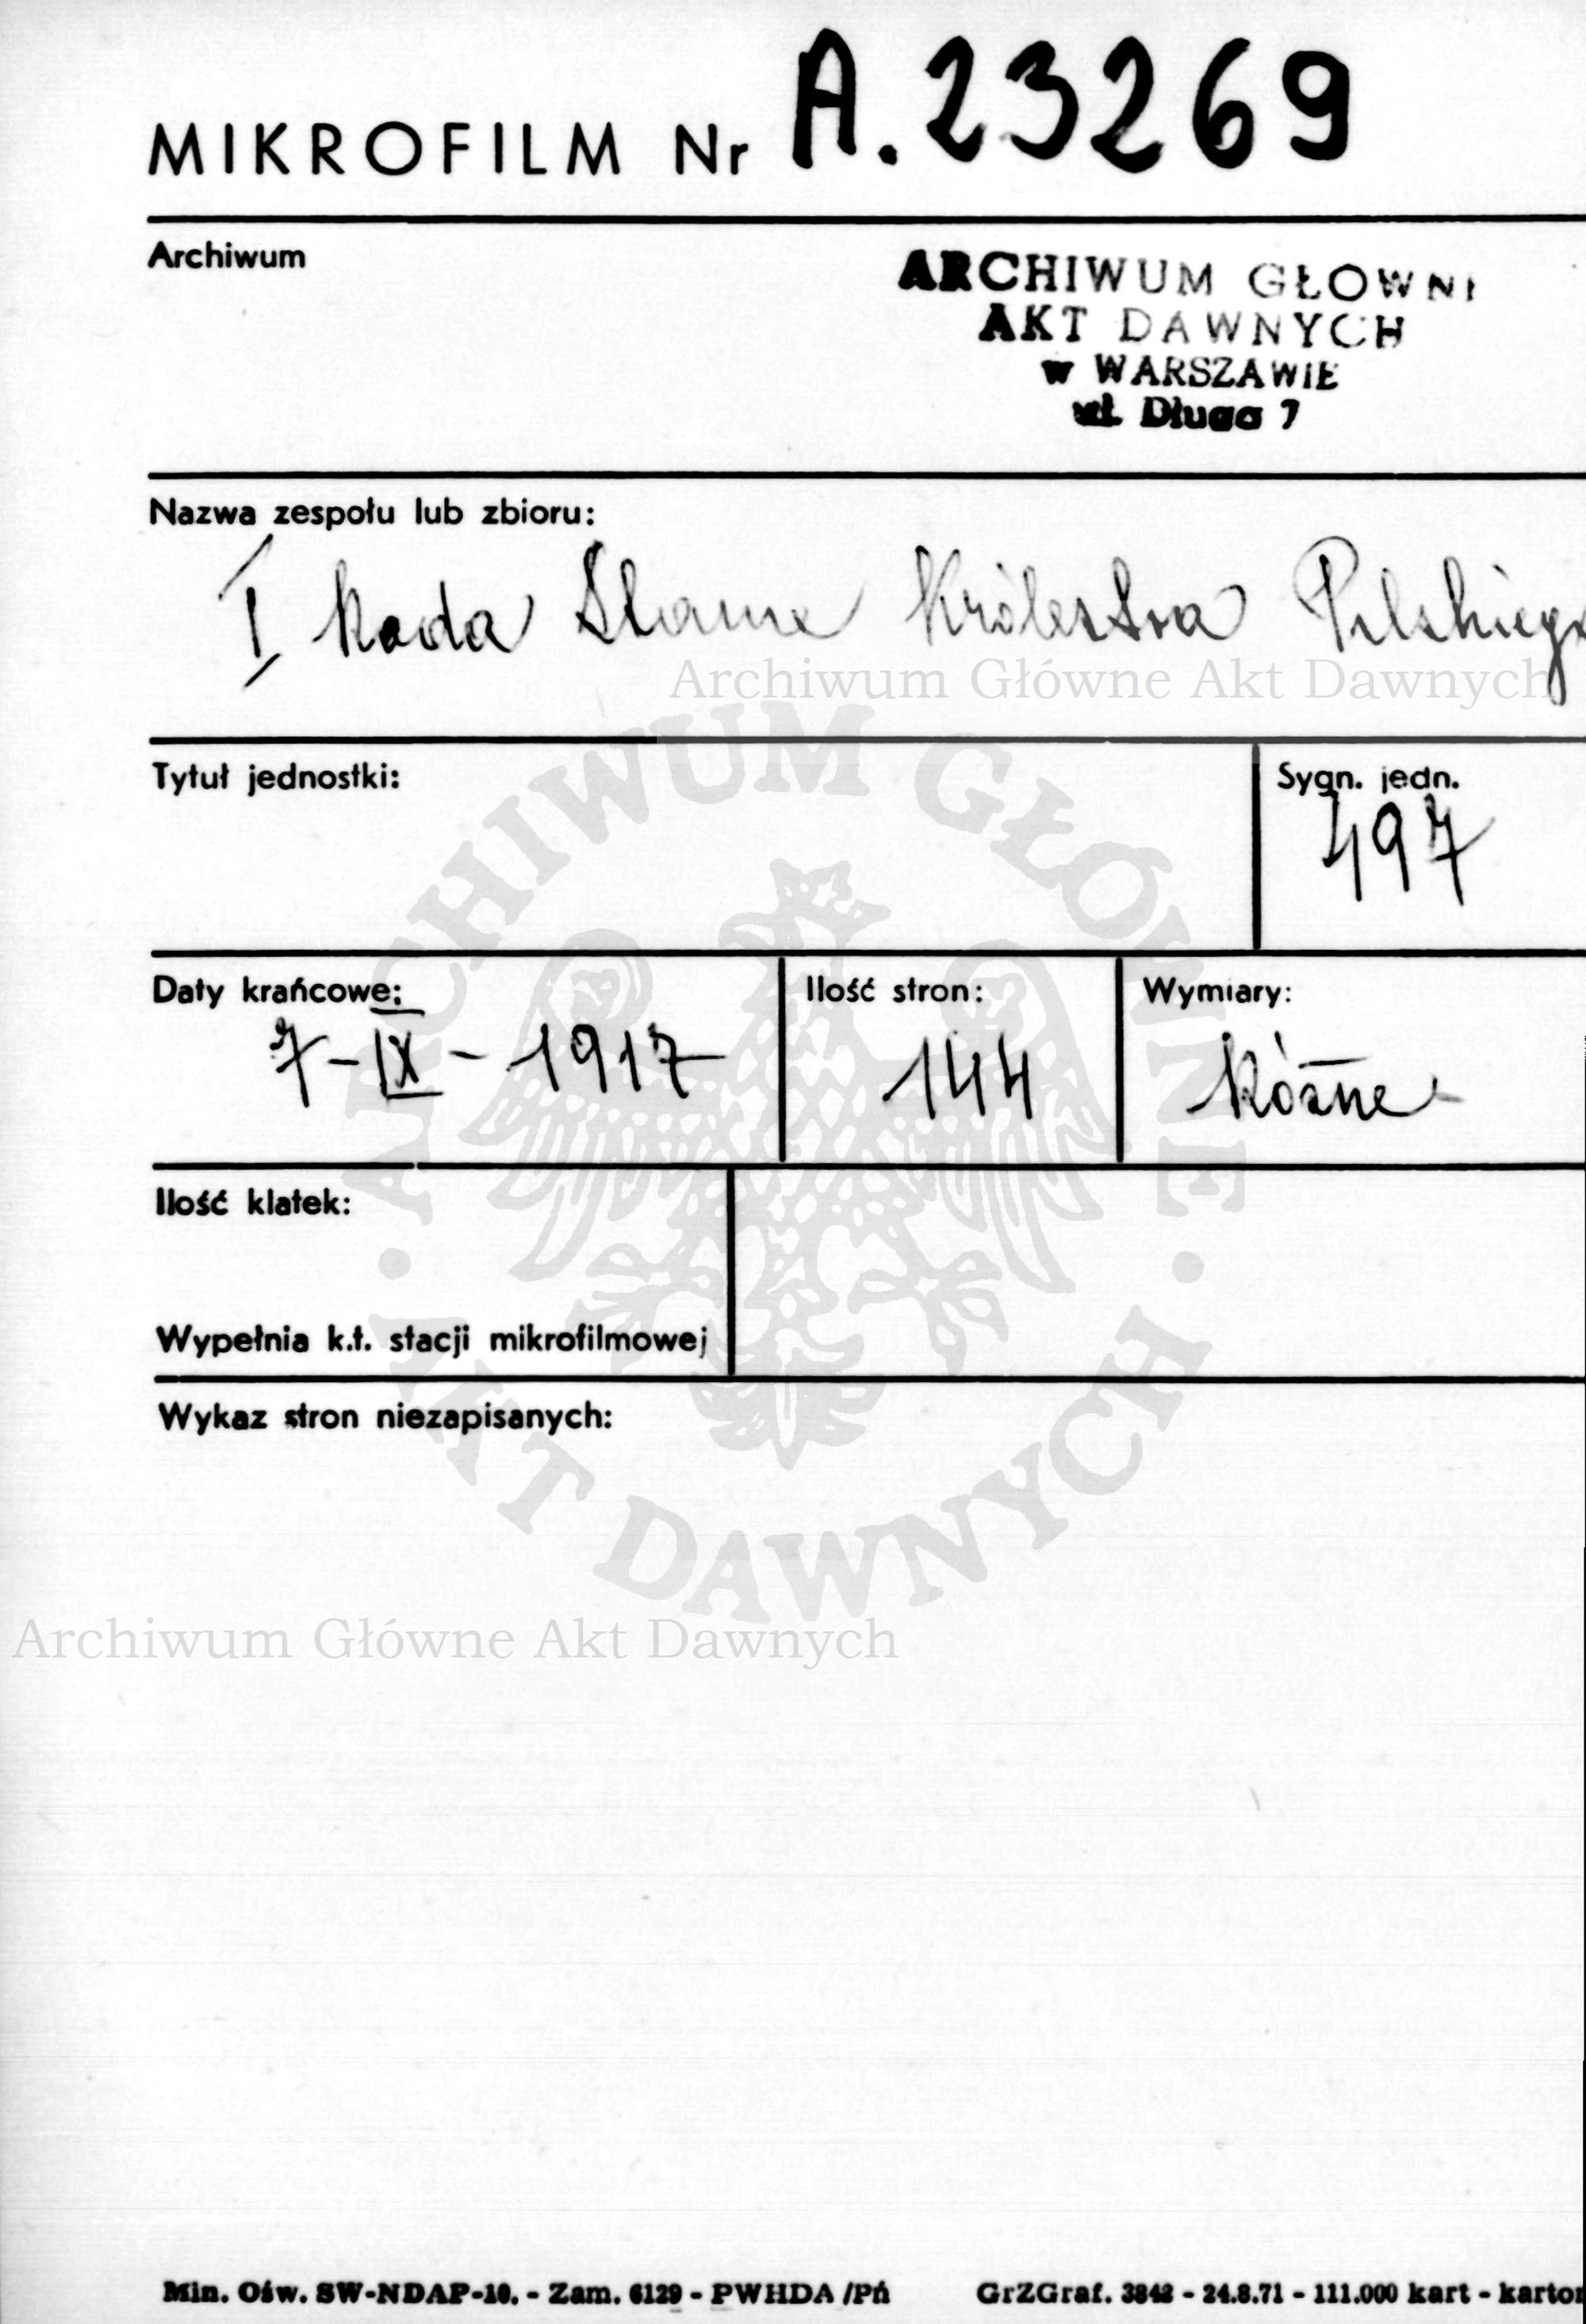 MIKROFILM Nr A.23269
Archiwum
ARCHIWUM GŁOWNE
AKT DAWNYCH
w WARSZAWIE
ul. Długa 7
Nazwa zespołu lub zbioru:
I Rada Stanu Królestwa Polskiego
Archiwum Główne Akt Dawnych
Tytuł jednostki:
Sygn. jedn.
497
Daty krańcowe:
7-IX-1917
Ilość stron:
144
Wymiary:
Różne
Ilość klatek:
Wypełnia k.t. stacji mikrofilmowej
Wykaz stron niezapisanych:
ARCHIWUM GŁÓWNE
· AKT DAWNYCH ·
Archiwum Główne Akt Dawnych
Min. Ośw. SW-NDAP-10. - Zam. 6129 - PWHDA /Pń GrZGraf. 3842 - 24.8.71 - 111.000 kart - karton